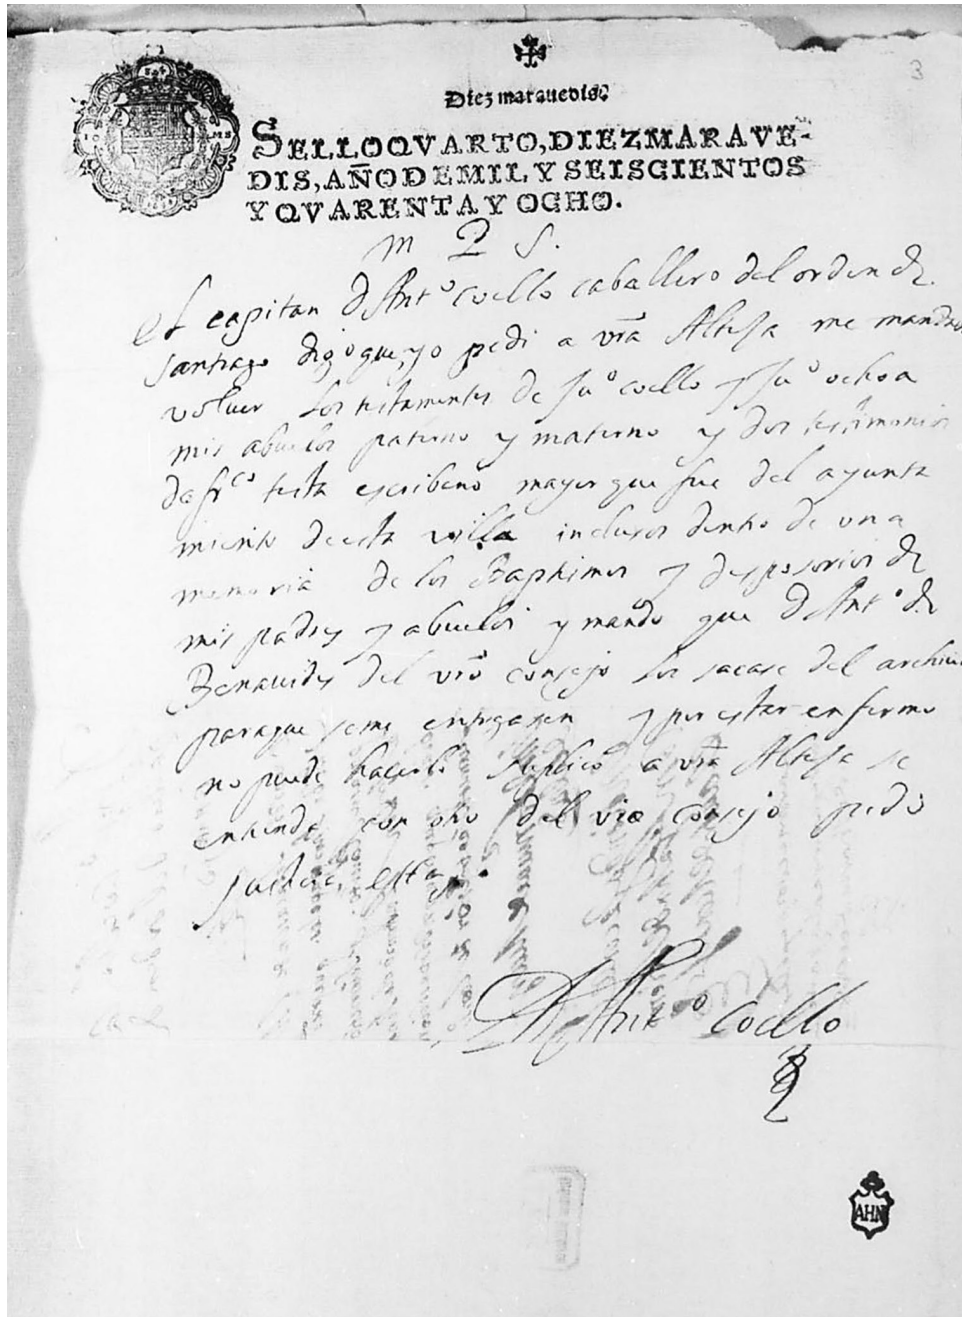 3
Diez marauedis.
SELLOQVARTO, DIEZMARAVE-
DIS, AÑODEMIL Y SEISCIENTOS
Y QVARENTA Y OCHO.
m P S.
el capitan D Antº coello caballero del orden de
santiago digo que yo pedi a vrā Altesa me mandase
voluer los testamentos de juº coello y juº ochoa
mis abuelos paterno y materno y dos testimonios
de frco testa escribano mayor que fue del ayunta
miento de esta villa inclusos dentro de una
memoria de los Baptismos y desposorios de
mis padres y abuelos y mando que D Antº de
Benauides del vrō consejo los sacase del archiuo
para que se me entregasen y por estar enfermo
no puede hacerlo suplico a vrā Altesa se
entienda con otro del vrō consejo pido
justicia
D Antº Coello
AHN